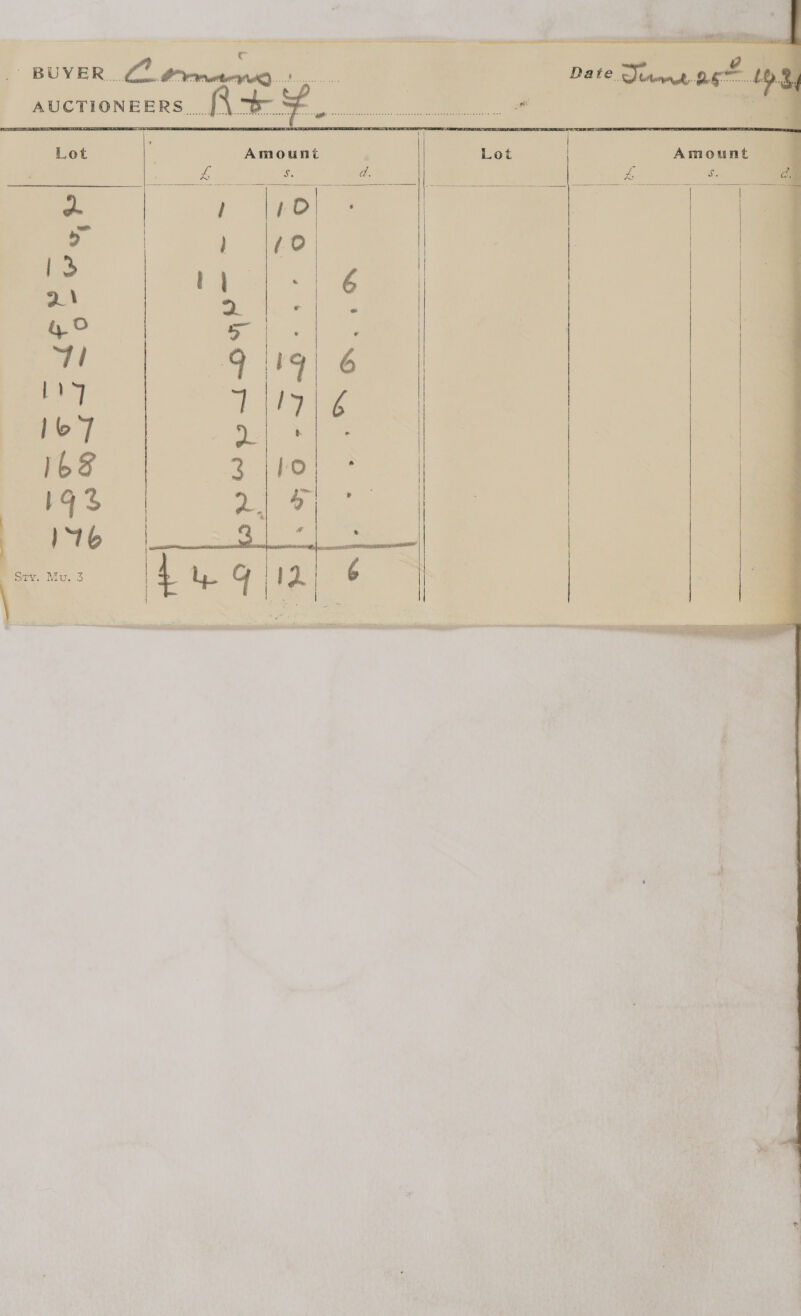 BUYER
Date June 25th 1931
AUCTIONEERS R & Y.
Lot Amount Lot Amount
£ s. d. £ s. d.
2 1 10 .
5 1 10
13 11 . 6
21 2 . .
40 5 . .
71 9 19 6
117 7 17 6
167 2 . .
168 3 10 .
193 2. 5 .
176 3 . .
STY. MU. 3 £49 12 6